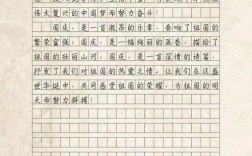 伟大复兴的中国梦而努力奋斗！
国庆，是一首激昂的乐章，奏响了祖国的
繁荣富强；国庆，是一幅绚丽的画卷，描绘了
祖国的壮丽山河；国庆，是一首深情的诗篇，
抒发了我们对祖国的热爱之情。让我们在这盛
世华诞中，共同感受祖国的荣耀，为祖国的明
天而努力拼搏！